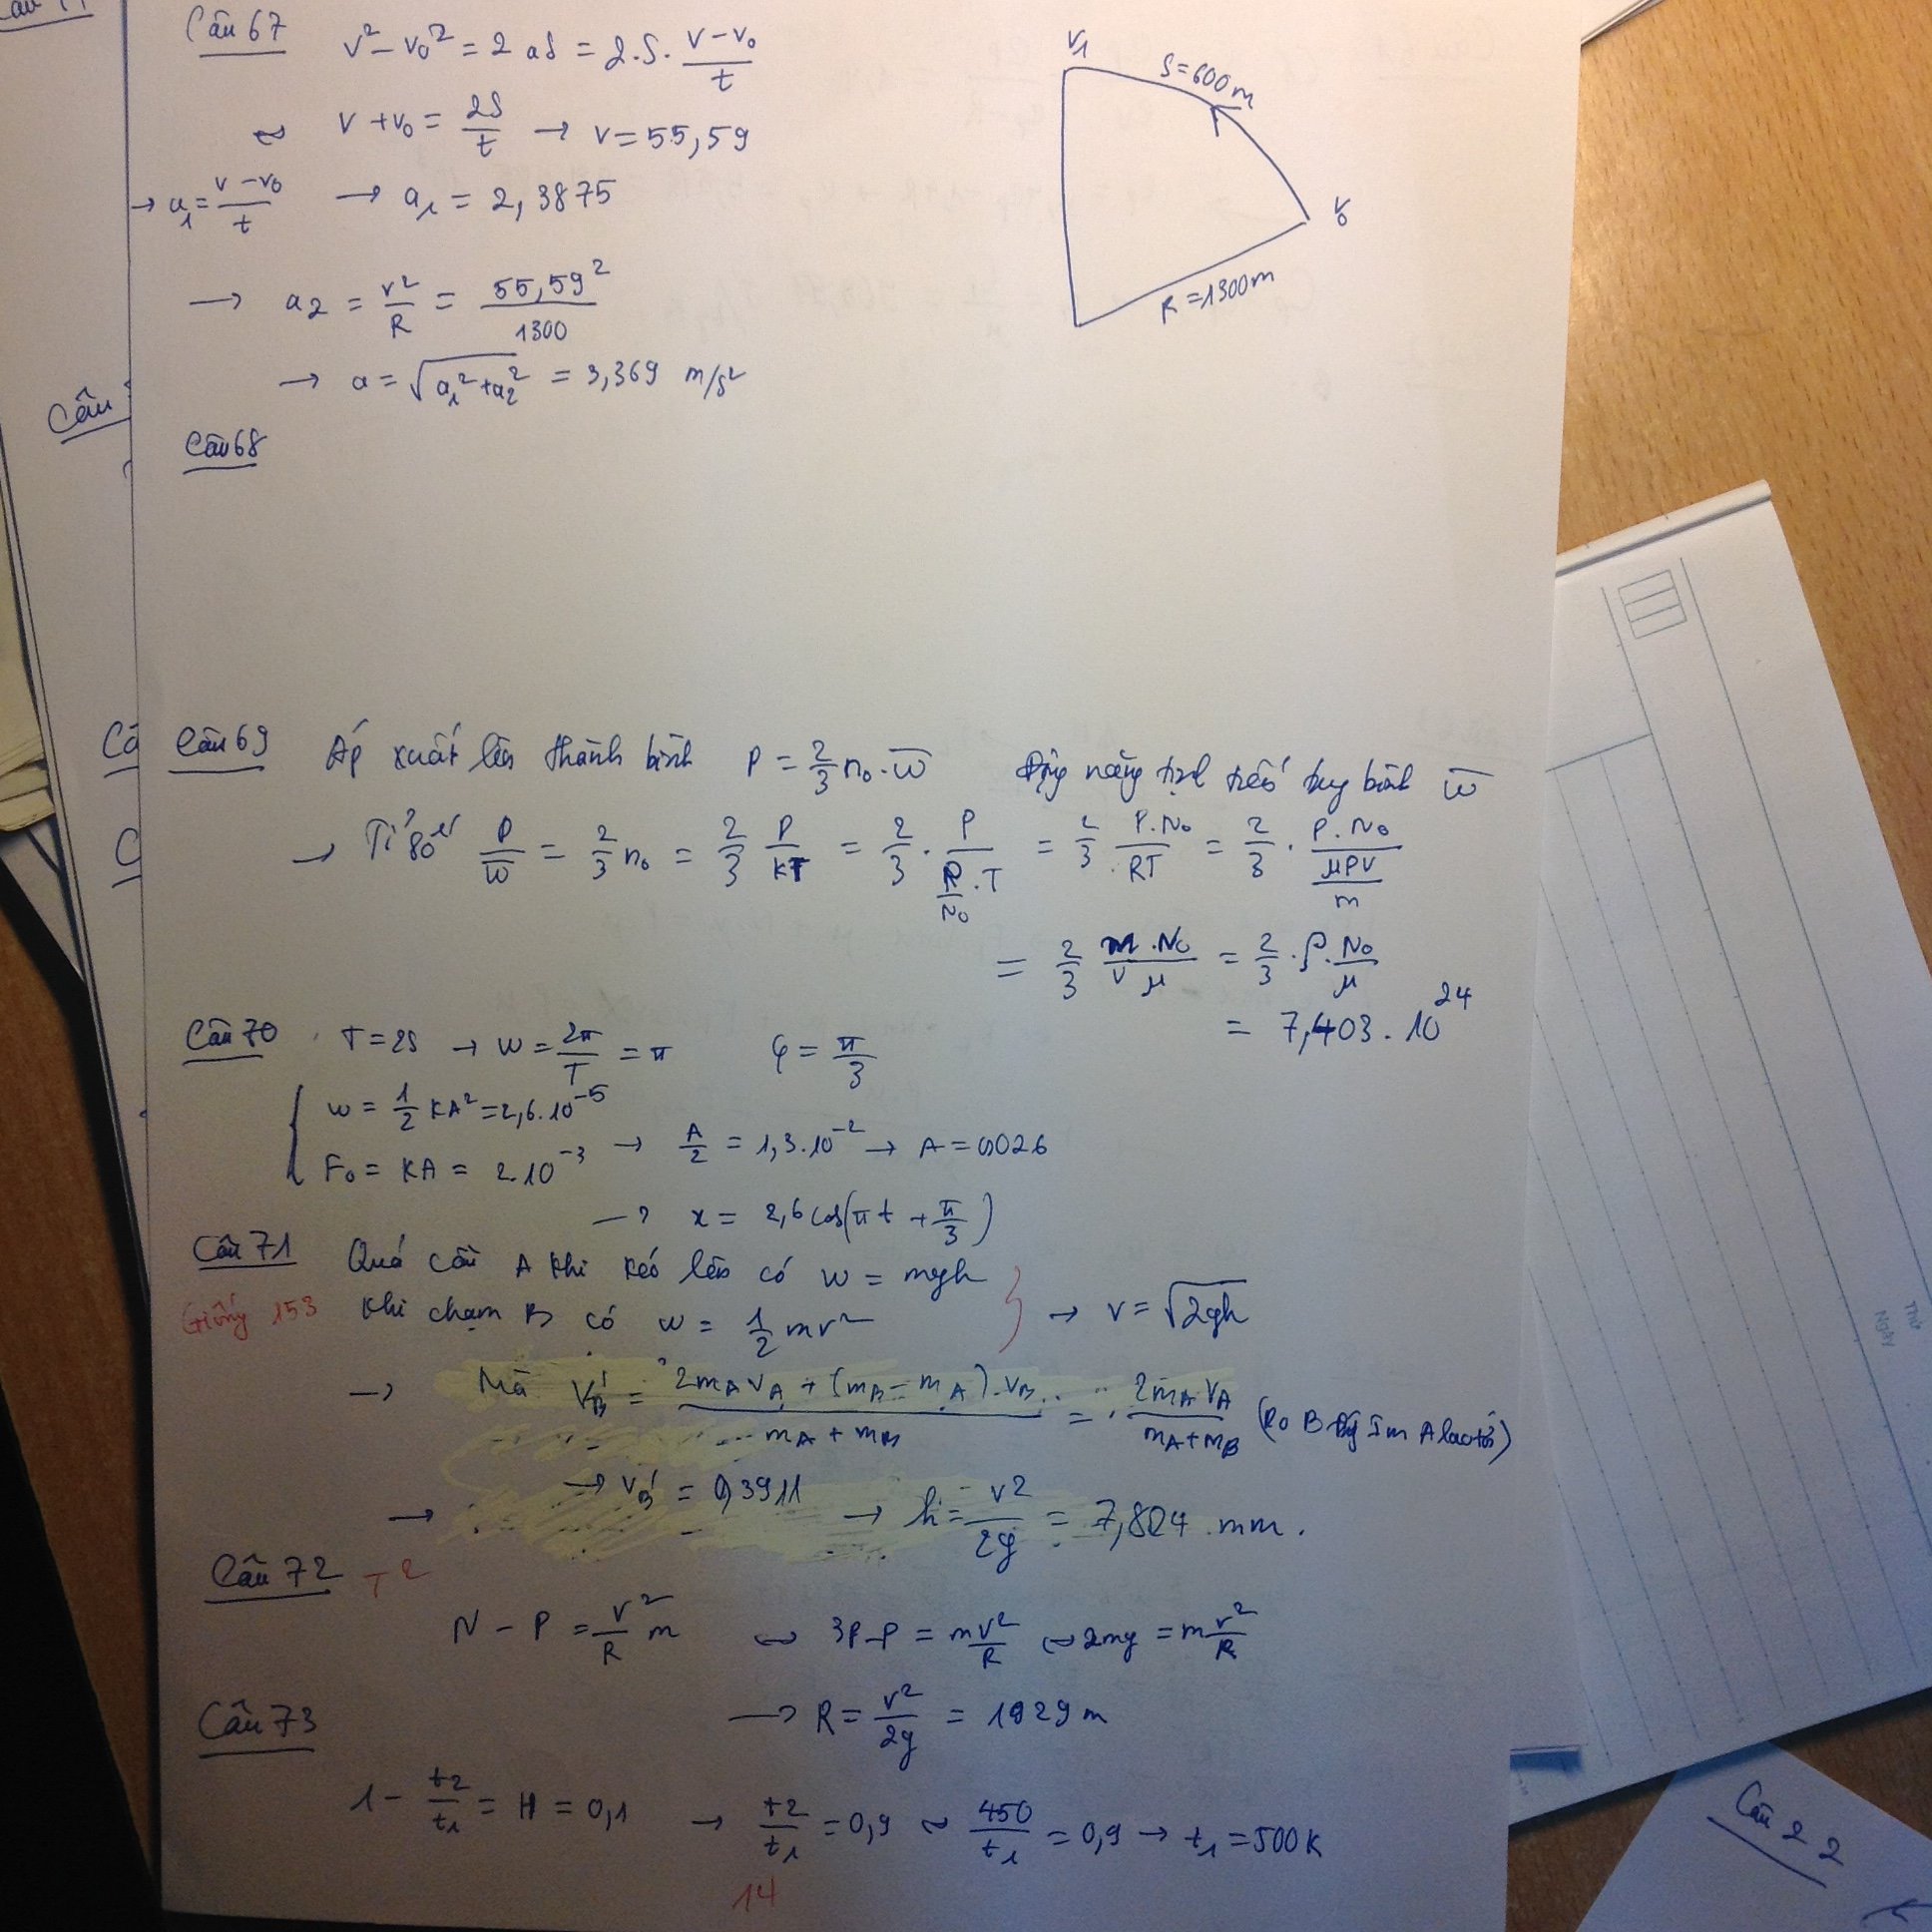 Câu 67 v² - v₀² = 2aS = 2.S. (v - v₀)/t
⇔ v + v₀ = 2S/t → v = 55,59
→ a₁ = (v - v₀)/t → a₁ = 2,3875
→ a₂ = v²/R = 55,59²/1300
→ a = √(a₁² + a₂²) = 3,369 m/s²
V₁
S = 600m
V₀
R = 1300m
Câu
Câu 68
Câu 69 Áp xuất lên thành bình P = 2/3 n₀.w̄ Động năng tịnh tiến trung bình w̄
→ Tỉ số P/w̄ = 2/3 n₀ = 2/3 P/KT = 2/3 . P/(R/N₀ .T) = 2/3 . P.N₀/RT = 2/3 . P.N₀/(μPV/m)
= 2/3 m.N₀/(V μ) = 2/3 . ρ . N₀/μ
= 7,403.10²⁴
Câu 70 T = 2s → w = 2π/T = π φ = π/3
w = 1/2 KA² = 2,6.10⁻⁵
F₀ = KA = 2.10⁻³ → A/2 = 1,3.10⁻² → A = 0,026
→ x = 2,6 cos(πt + π/3)
Câu 71 Quả cầu A khi kéo lên có w = mgh
Giống 153 Khi chạm B có w = 1/2 mv² → v = √(2gh)
→ Mà V'_B = (2m_A v_A + (m_B - m_A).v_B)/(m_A + m_B) = 2m_A v_A/(m_A + m_B) (Do B đứng im A lao tới)
→ v'_B = 0,3911 → h = v²/2g = 7,804 mm.
Câu 72 T²
N - P = v²/R m ⇔ 3P - P = mv²/R ⇔ 2mg = m v²/R
→ R = v²/2g = 1929 m
Câu 73
1 - t₂/t₁ = H = 0,1 → t₂/t₁ = 0,9 ⇔ 450/t₁ = 0,9 → t₁ = 500K
14
Câu 22
Thứ
Ngày